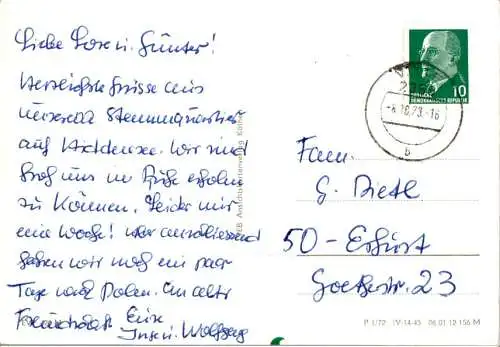 Liebe Lore u. Günter!
Herzlichste Grüsse aus
unserem Stammquartier
auf Hiddensee. Wir sind
froh uns in Ruhe erholen
zu können. Leider nur
eine Woche! Aber anschliessend
fahren wir noch ein paar
Tage nach Polen. In alter
Freundschaft Eure
Inge u. Wolfgang
10
DEMOKRATISCHE REPUBLIK
-8.10.73.-16
b
Fam.
G. Dietl
50-Erfurt
Goethestr. 23
P 1/72 IV-14-45 06 01 12 156 M